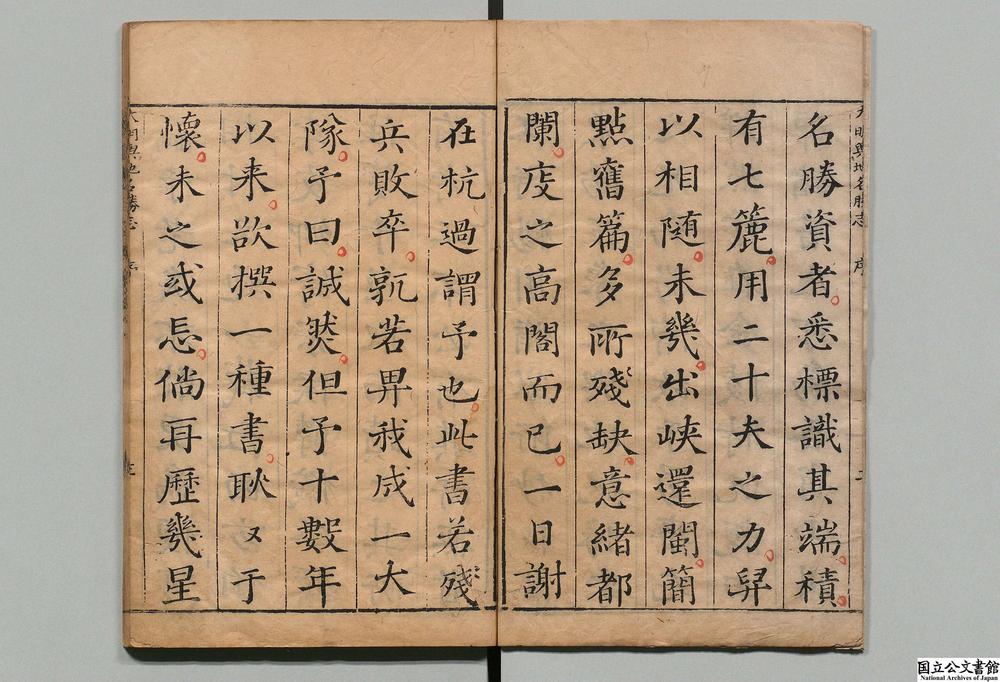 名勝資者悉標識其端積
有七簏用二十夫之力舁
以相随未幾出峽還閩簡
點舊篇多所殘缺意緒都
闌庋之高閣而已一日謝
在杭過謂予也此書若殘
兵敗卒孰若畀我成一大
隊予曰誠然但予十數年
以来欲撰一種書耿々于
懷未之或忘倘再歷幾星
大明輿地名勝志
序
二
大明輿地名勝志
序
国立公文書館
National Archives of Japan